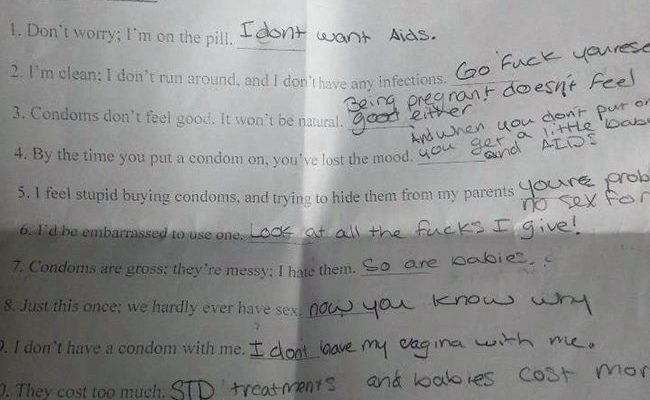 1. Don't worry; I'm on the pill. I dont want Aids.
2. I'm clean; I don't run around, and I don't have any infections. Go Fuck yourese
Being pregnant doesn't feel
3. Condoms don't feel good. It won't be natural. good either
And when you don't put on
4. By the time you put a condom on, you've lost the mood. you get a little
and AIDS
5. I feel stupid buying condoms, and trying to hide them from my parents youre prob
no sex For
6. I'd be embarrassed to use one. Look at all the fucks I give!
7. Condoms are gross; they're messy; I hate them. So are babies.
8. Just this once; we hardly ever have sex. now you know why
9. I don't have a condom with me. I dont have my vagina with me.
0. They cost too much. STD treatments and babies cost mor